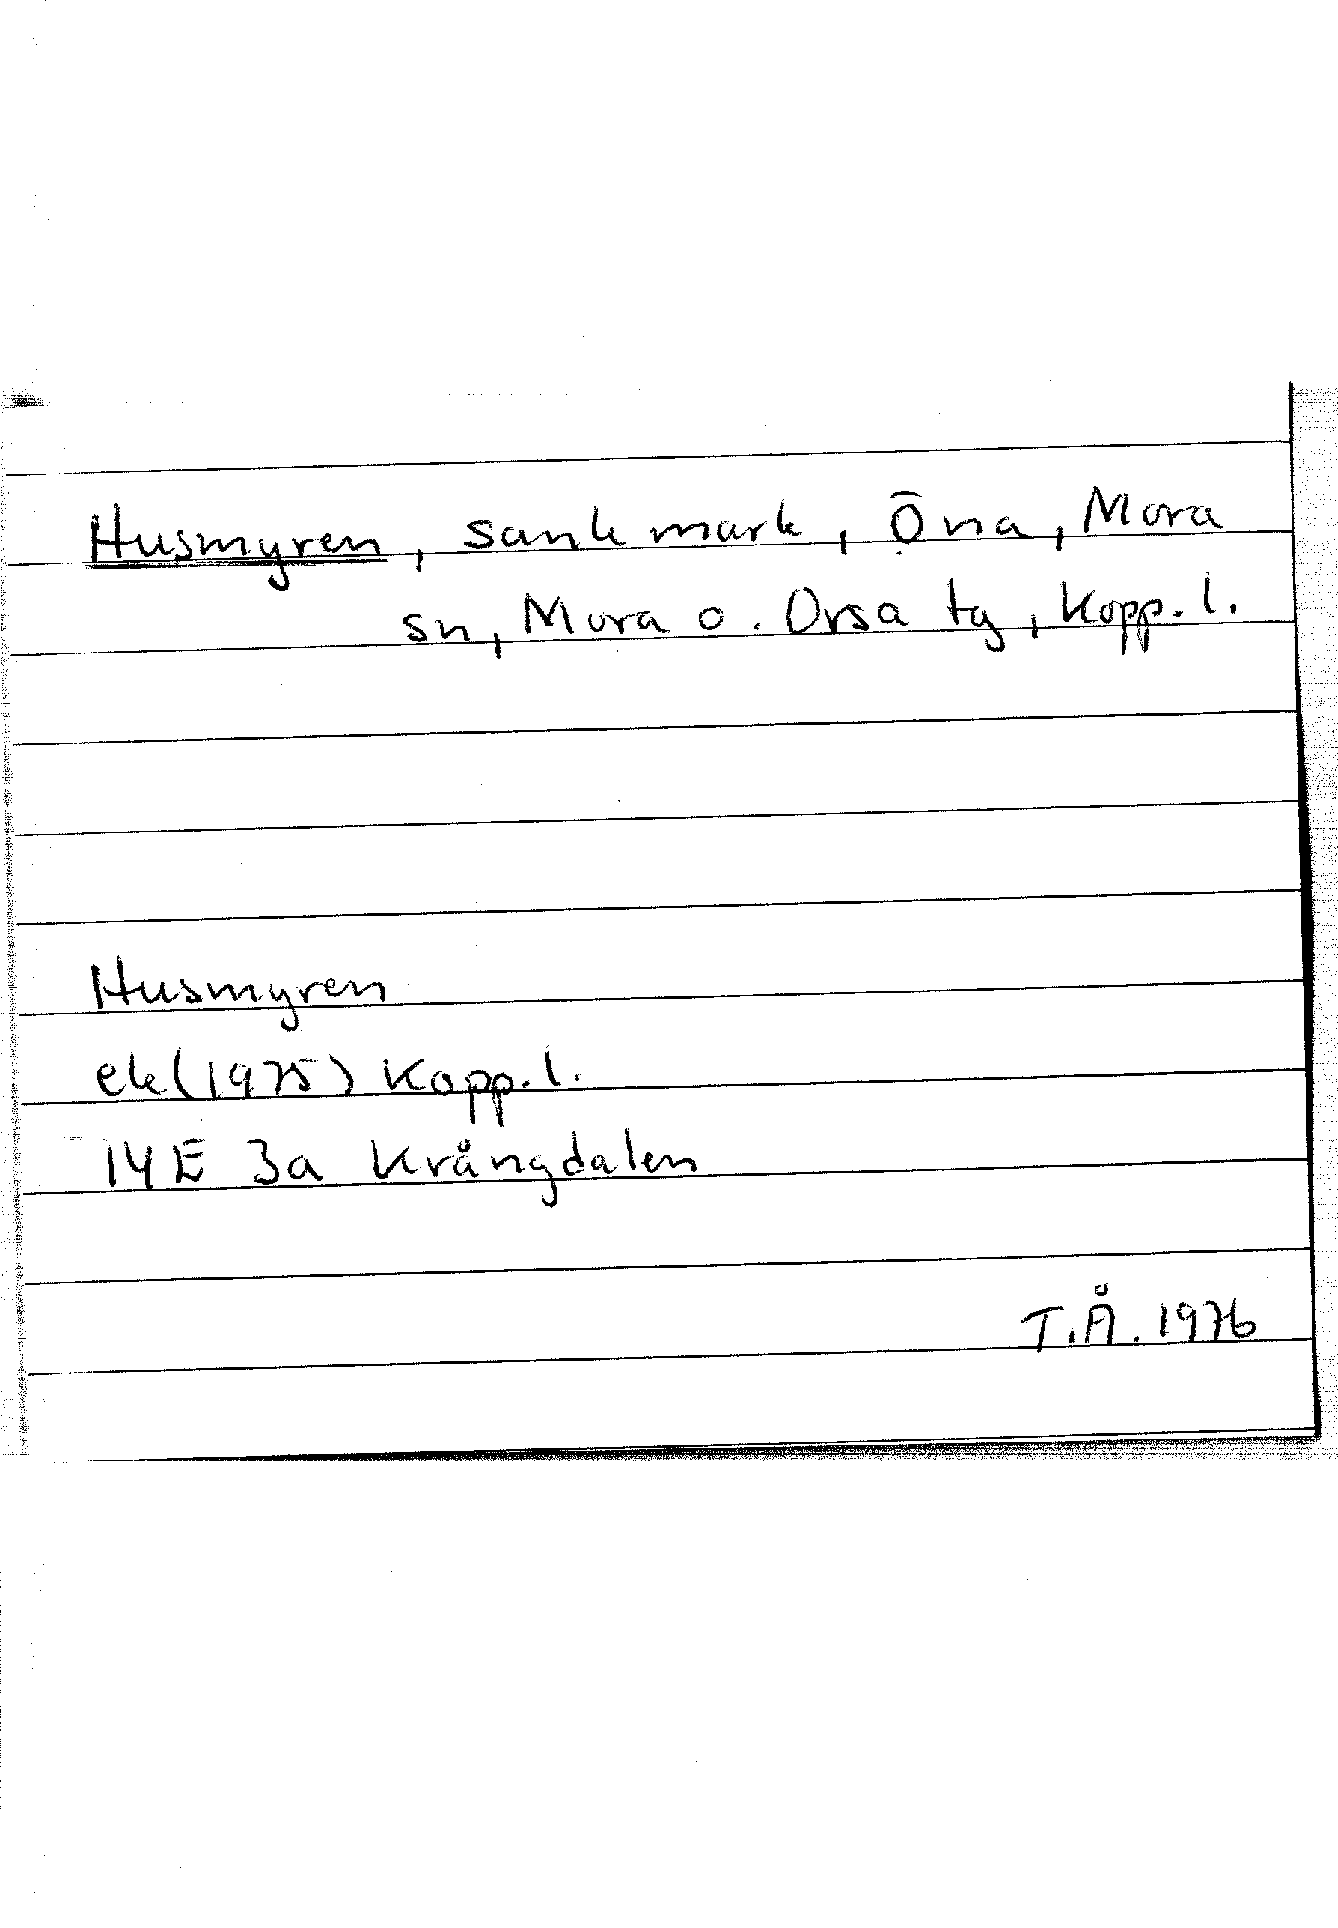 Husmyren, sank mark, Öna, Mora
sn, Mora o. Orsa tg, Kopp. l.
Husmyren
ek (1975) Kopp. l.
14E 3a Krångdalen
T.Å. 1976